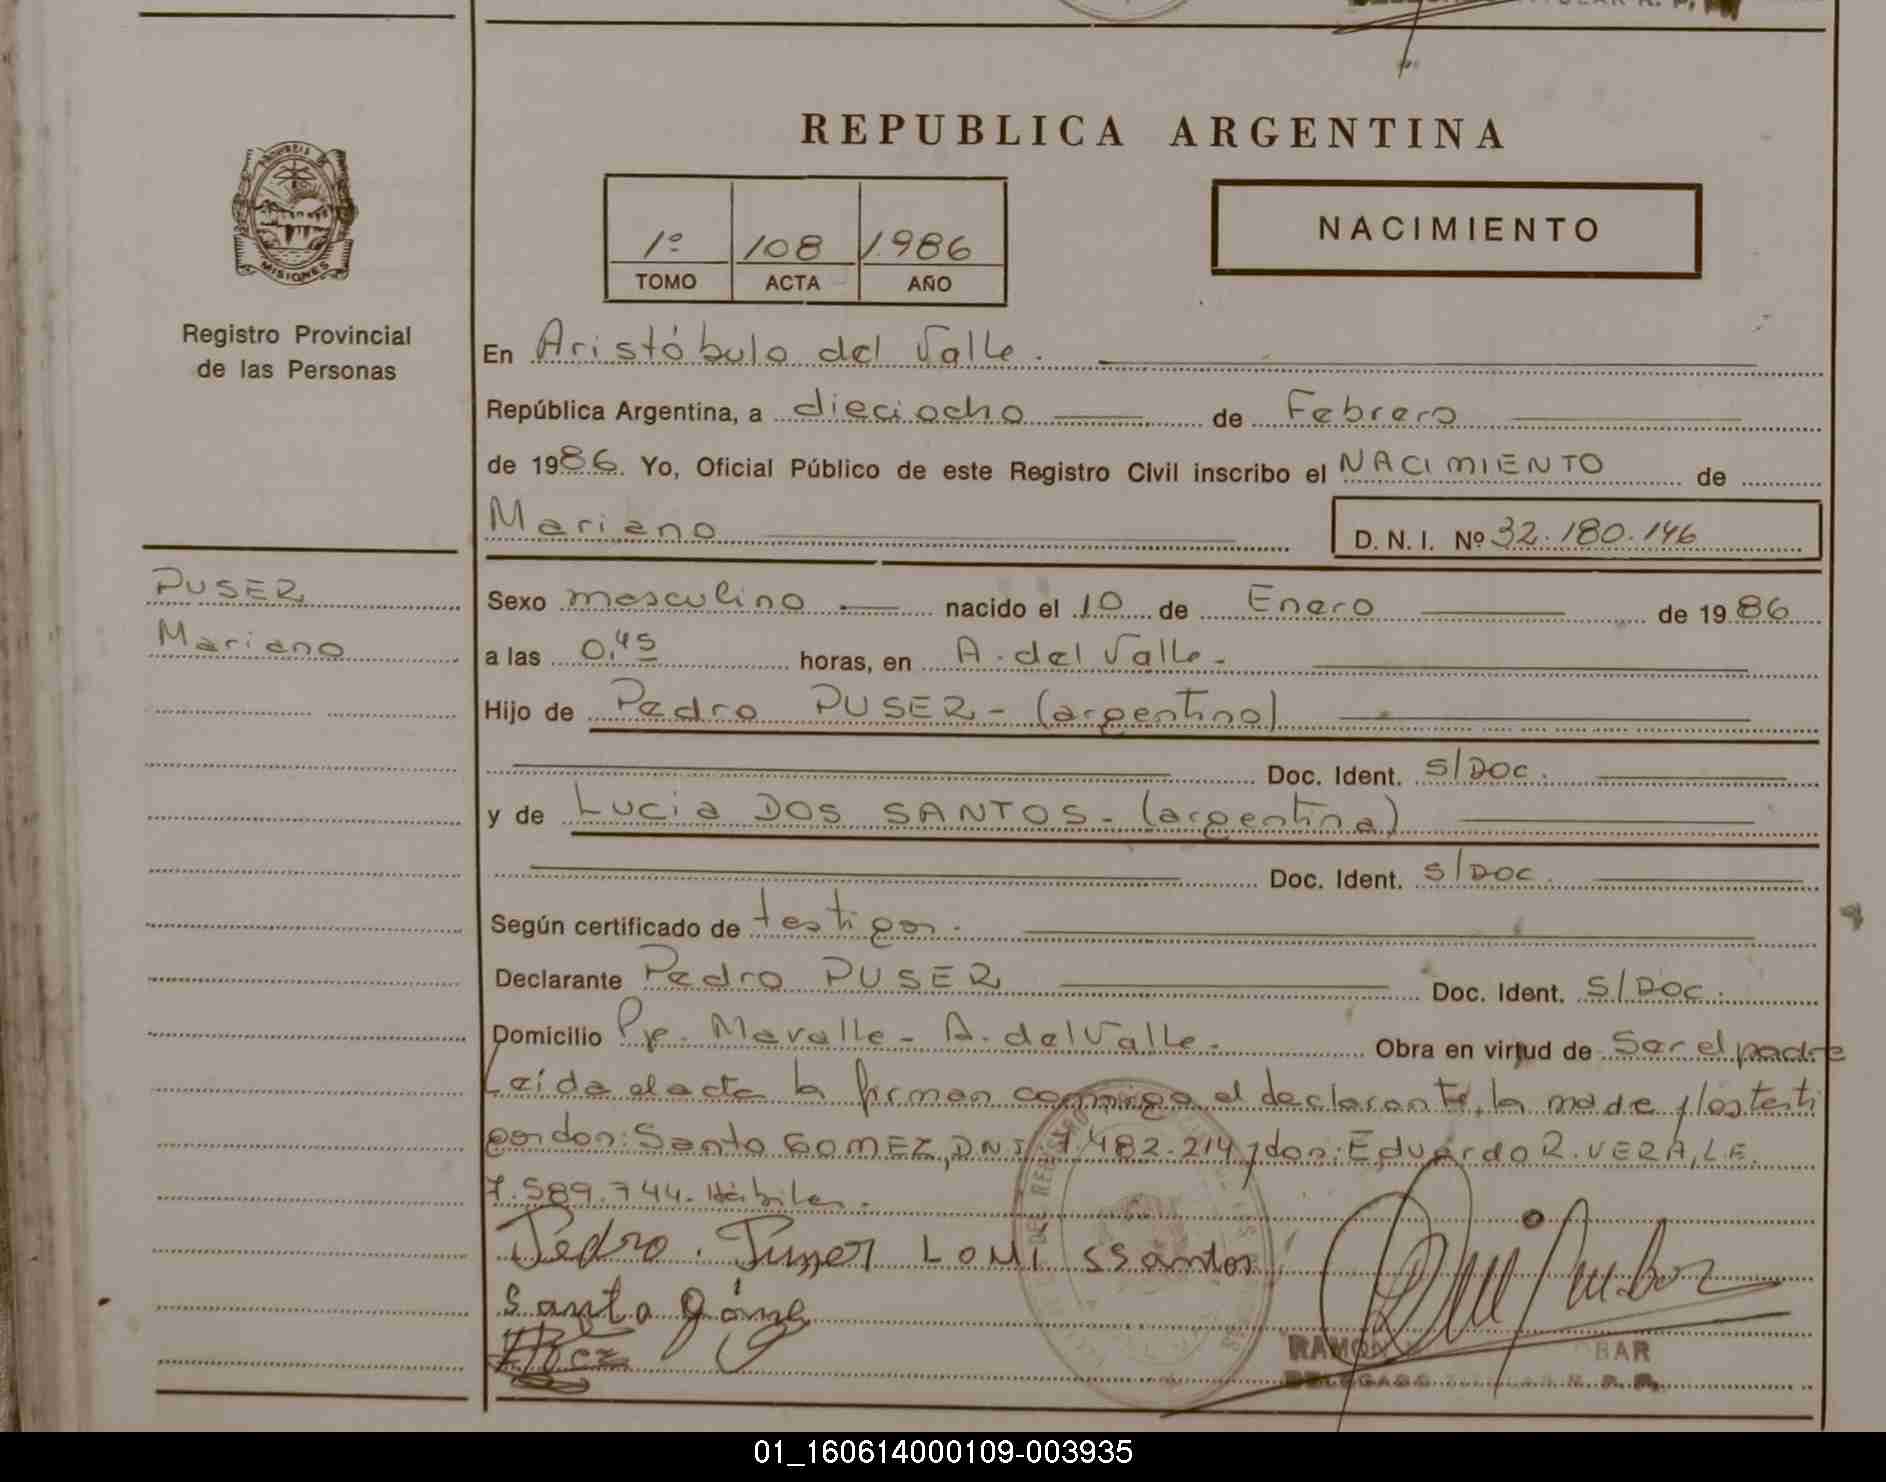 REPUBLICA ARGENTINA
MISIONES
Registro Provincial
de las Personas
1º 108 1.986
TOMO ACTA AÑO
NACIMIENTO
En Aristóbulo del Valle.
República Argentina, a dieciocho de Febrero
de 1986. Yo, Oficial Público de este Registro Civil inscribo el NACIMIENTO de
Mariano D. N. I. Nº 32.180.146
PUSER
Mariano
Sexo masculino nacido el 10 de Enero de 1986
a las 0,45 horas, en A. del Valle.
Hijo de Pedro PUSER - (argentino)
Doc. Ident. S/DOC.
y de Lucia DOS SANTOS - (argentina)
Doc. Ident. S/DOC.
Según certificado de testigos.
Declarante Pedro PUSER Doc. Ident. S/DOC.
Domicilio Pje. Mavalle - A. del Valle. Obra en virtud de Ser el padre
Leída el acta la firman conmigo el declarante, la madre y los testi
gos don: Santo GOMEZ, DNI 7.482.214 y don: Eduardo R. VERA, L.E.
7.589.744. Hábiles.
Pedro. LOMI SSantos
Santo
RAMON BAR
DELEGADO TITULAR R. P. P.
01_160614000109-003935